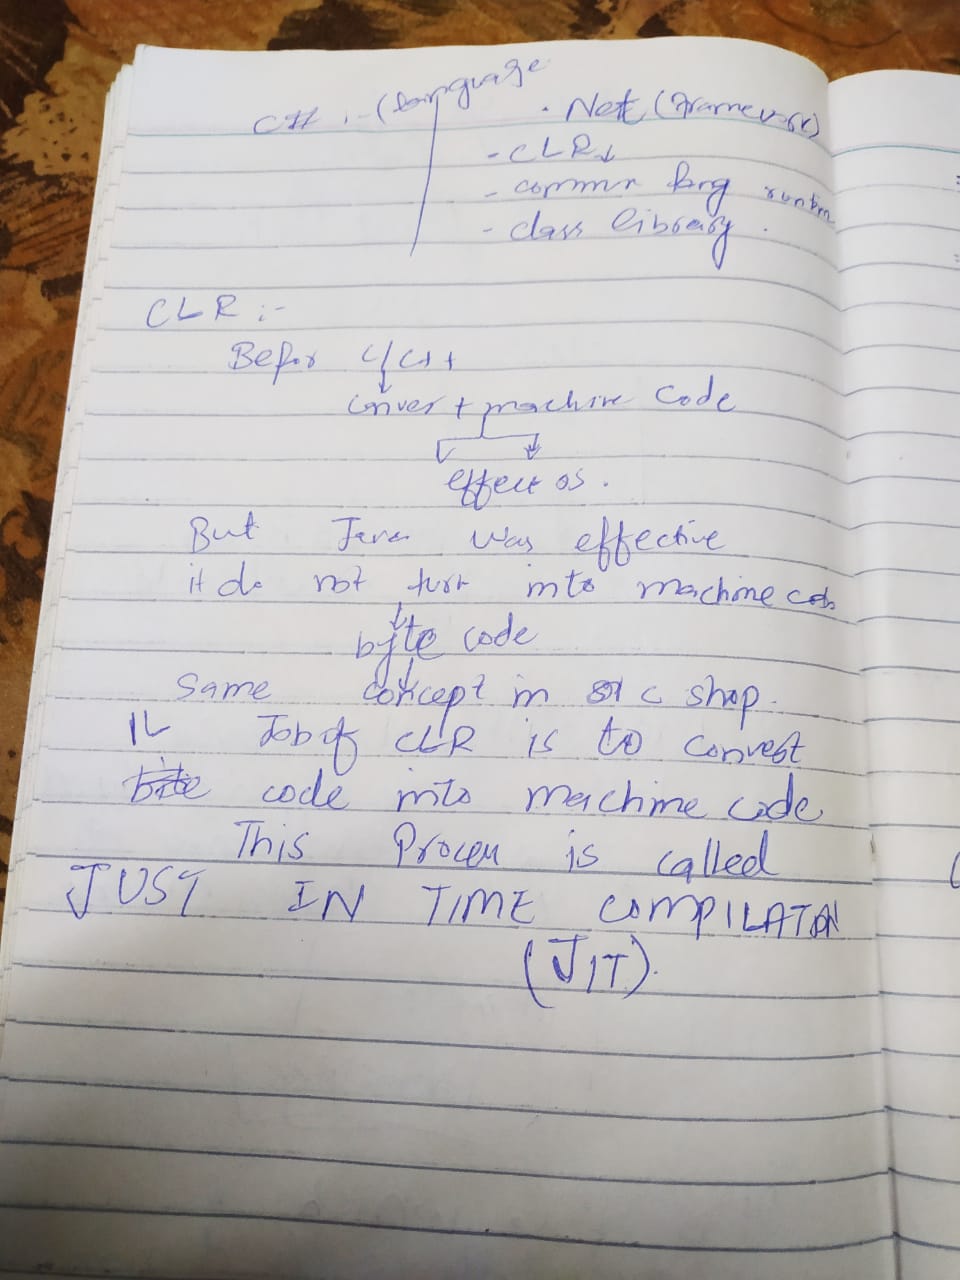 C# :- (language
. Net (Framework)
- CLR ↓
- common lang runtm
- class library.
CLR :-
Befor C/C++
↓
conver t machine code
effect os.
But Java was effective
it do not turn into machine code
↓
byte code
↓
Same concept in c shap.
IL Job of CLR is to convert
code into machine code
This Process is called
JUST IN TIME COMPILATION
(JIT).